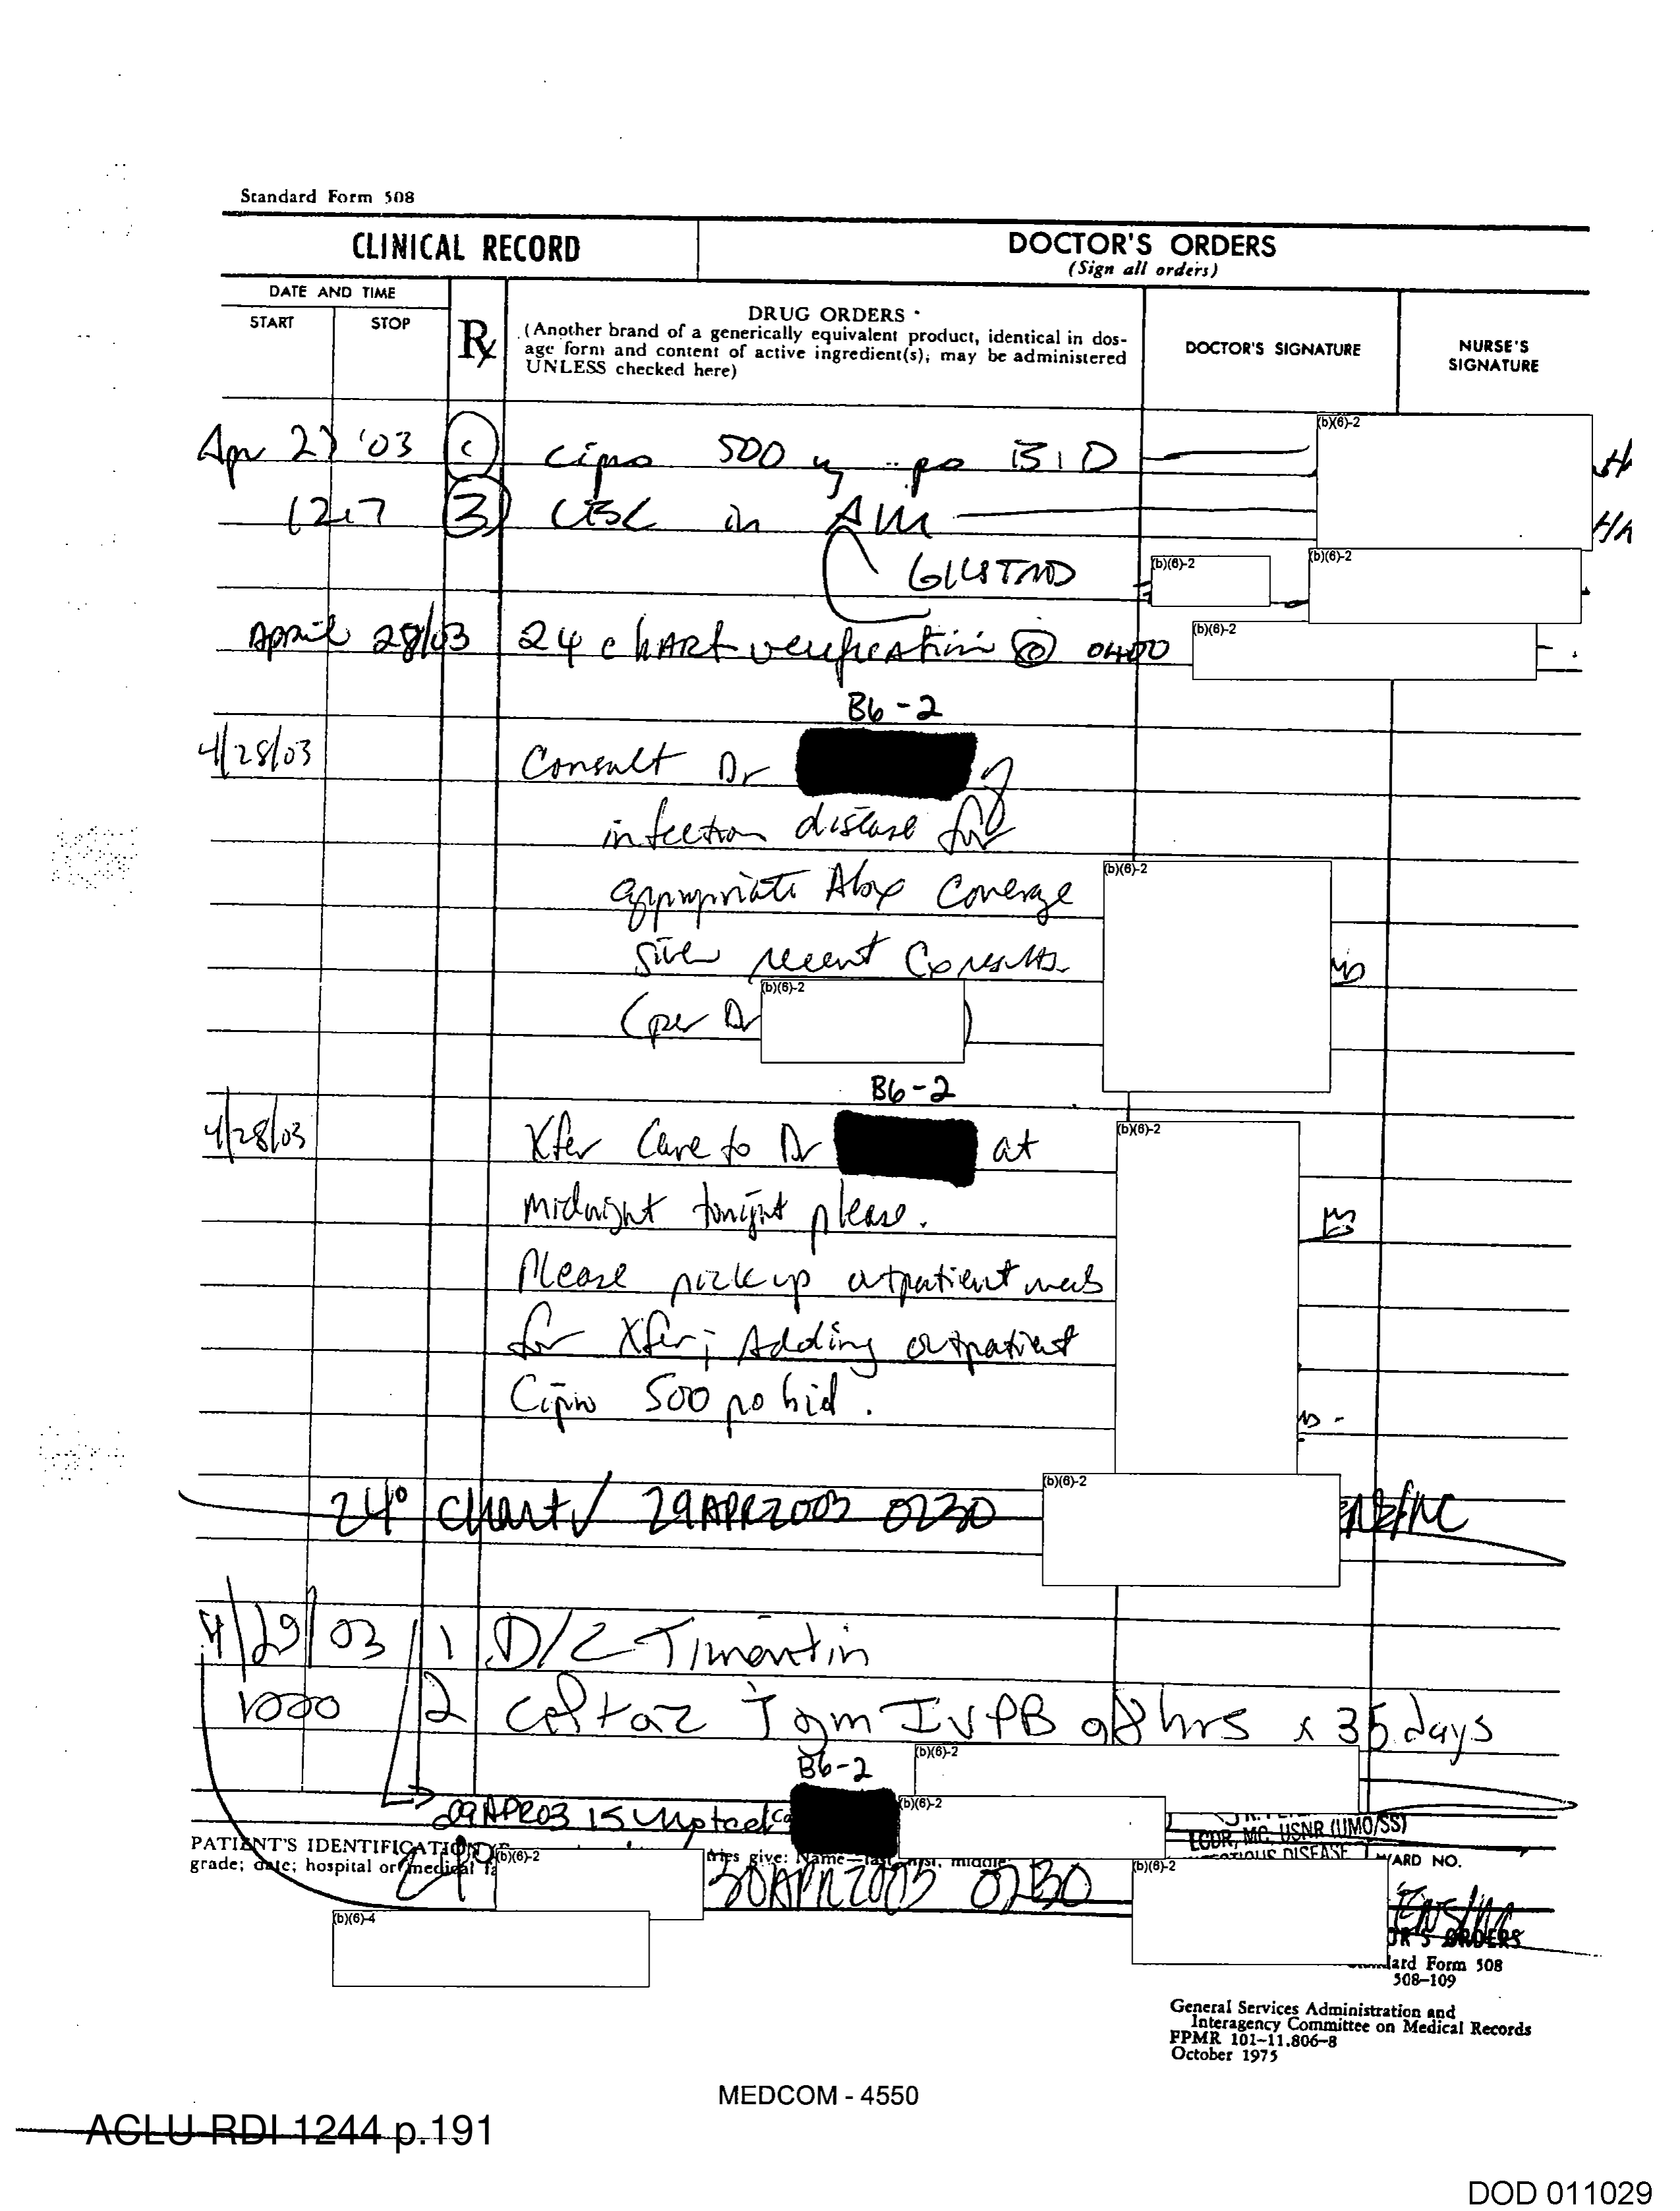 Standard Form 508
CLINICAL RECORD
DOCTOR'S ORDERS
(Sign all orders)
DATE AND TIME
START STOP
Rx
DRUG ORDERS
(Another brand of a generically equivalent product, identical in dos-
age form and content of active ingredient(s), may be administered
UNLESS checked here)
DOCTOR'S SIGNATURE
NURSE'S
SIGNATURE
(b)(6)-2
Apr 27 '03 cipro 500 po BID
1217 3 CBC in AM
(b)(6)-2
(b)(6)-2
April 28/03 24 chart verification @ 0400
(b)(6)-2
B6-2
4/28/03 Consult Dr
infection disease for
appropriate Abx Coverage
given recent Cx results
(b)(6)-2
(per Dr (b)(6)-2 )
B6-2
4/28/03 Xfer Care to Dr at
(b)(6)-2
midnight tonight please.
Please pick up outpatient meds
for Xfer; Adding outpatient
Cipro 500 po bid.
24° chart √ 29APR2003 0230 (b)(6)-2 ENS/NC
4/29/03 1 D/C Timentin
1000 2 Ceftaz 1 gm IVPB q8hrs x 35 days
B6-2
(b)(6)-2
29APR03 1540 noted
(b)(6)-2
LCDR, MC, USNR (UMO/SS)
INFECTIOUS DISEASE
PATIENT'S IDENTIFICATION
grade; date; hospital or medical
(b)(6)-2
tries give: Name—last, first, middle;
(b)(6)-2
WARD NO.
24 30APR2003 0230 ENS/NC
(b)(6)-4
DOCTOR'S ORDERS
Standard Form 508
508-109
General Services Administration and
Interagency Committee on Medical Records
FPMR 101-11.806-8
October 1975
MEDCOM - 4550
ACLU-RDI 1244 p.191
DOD 011029